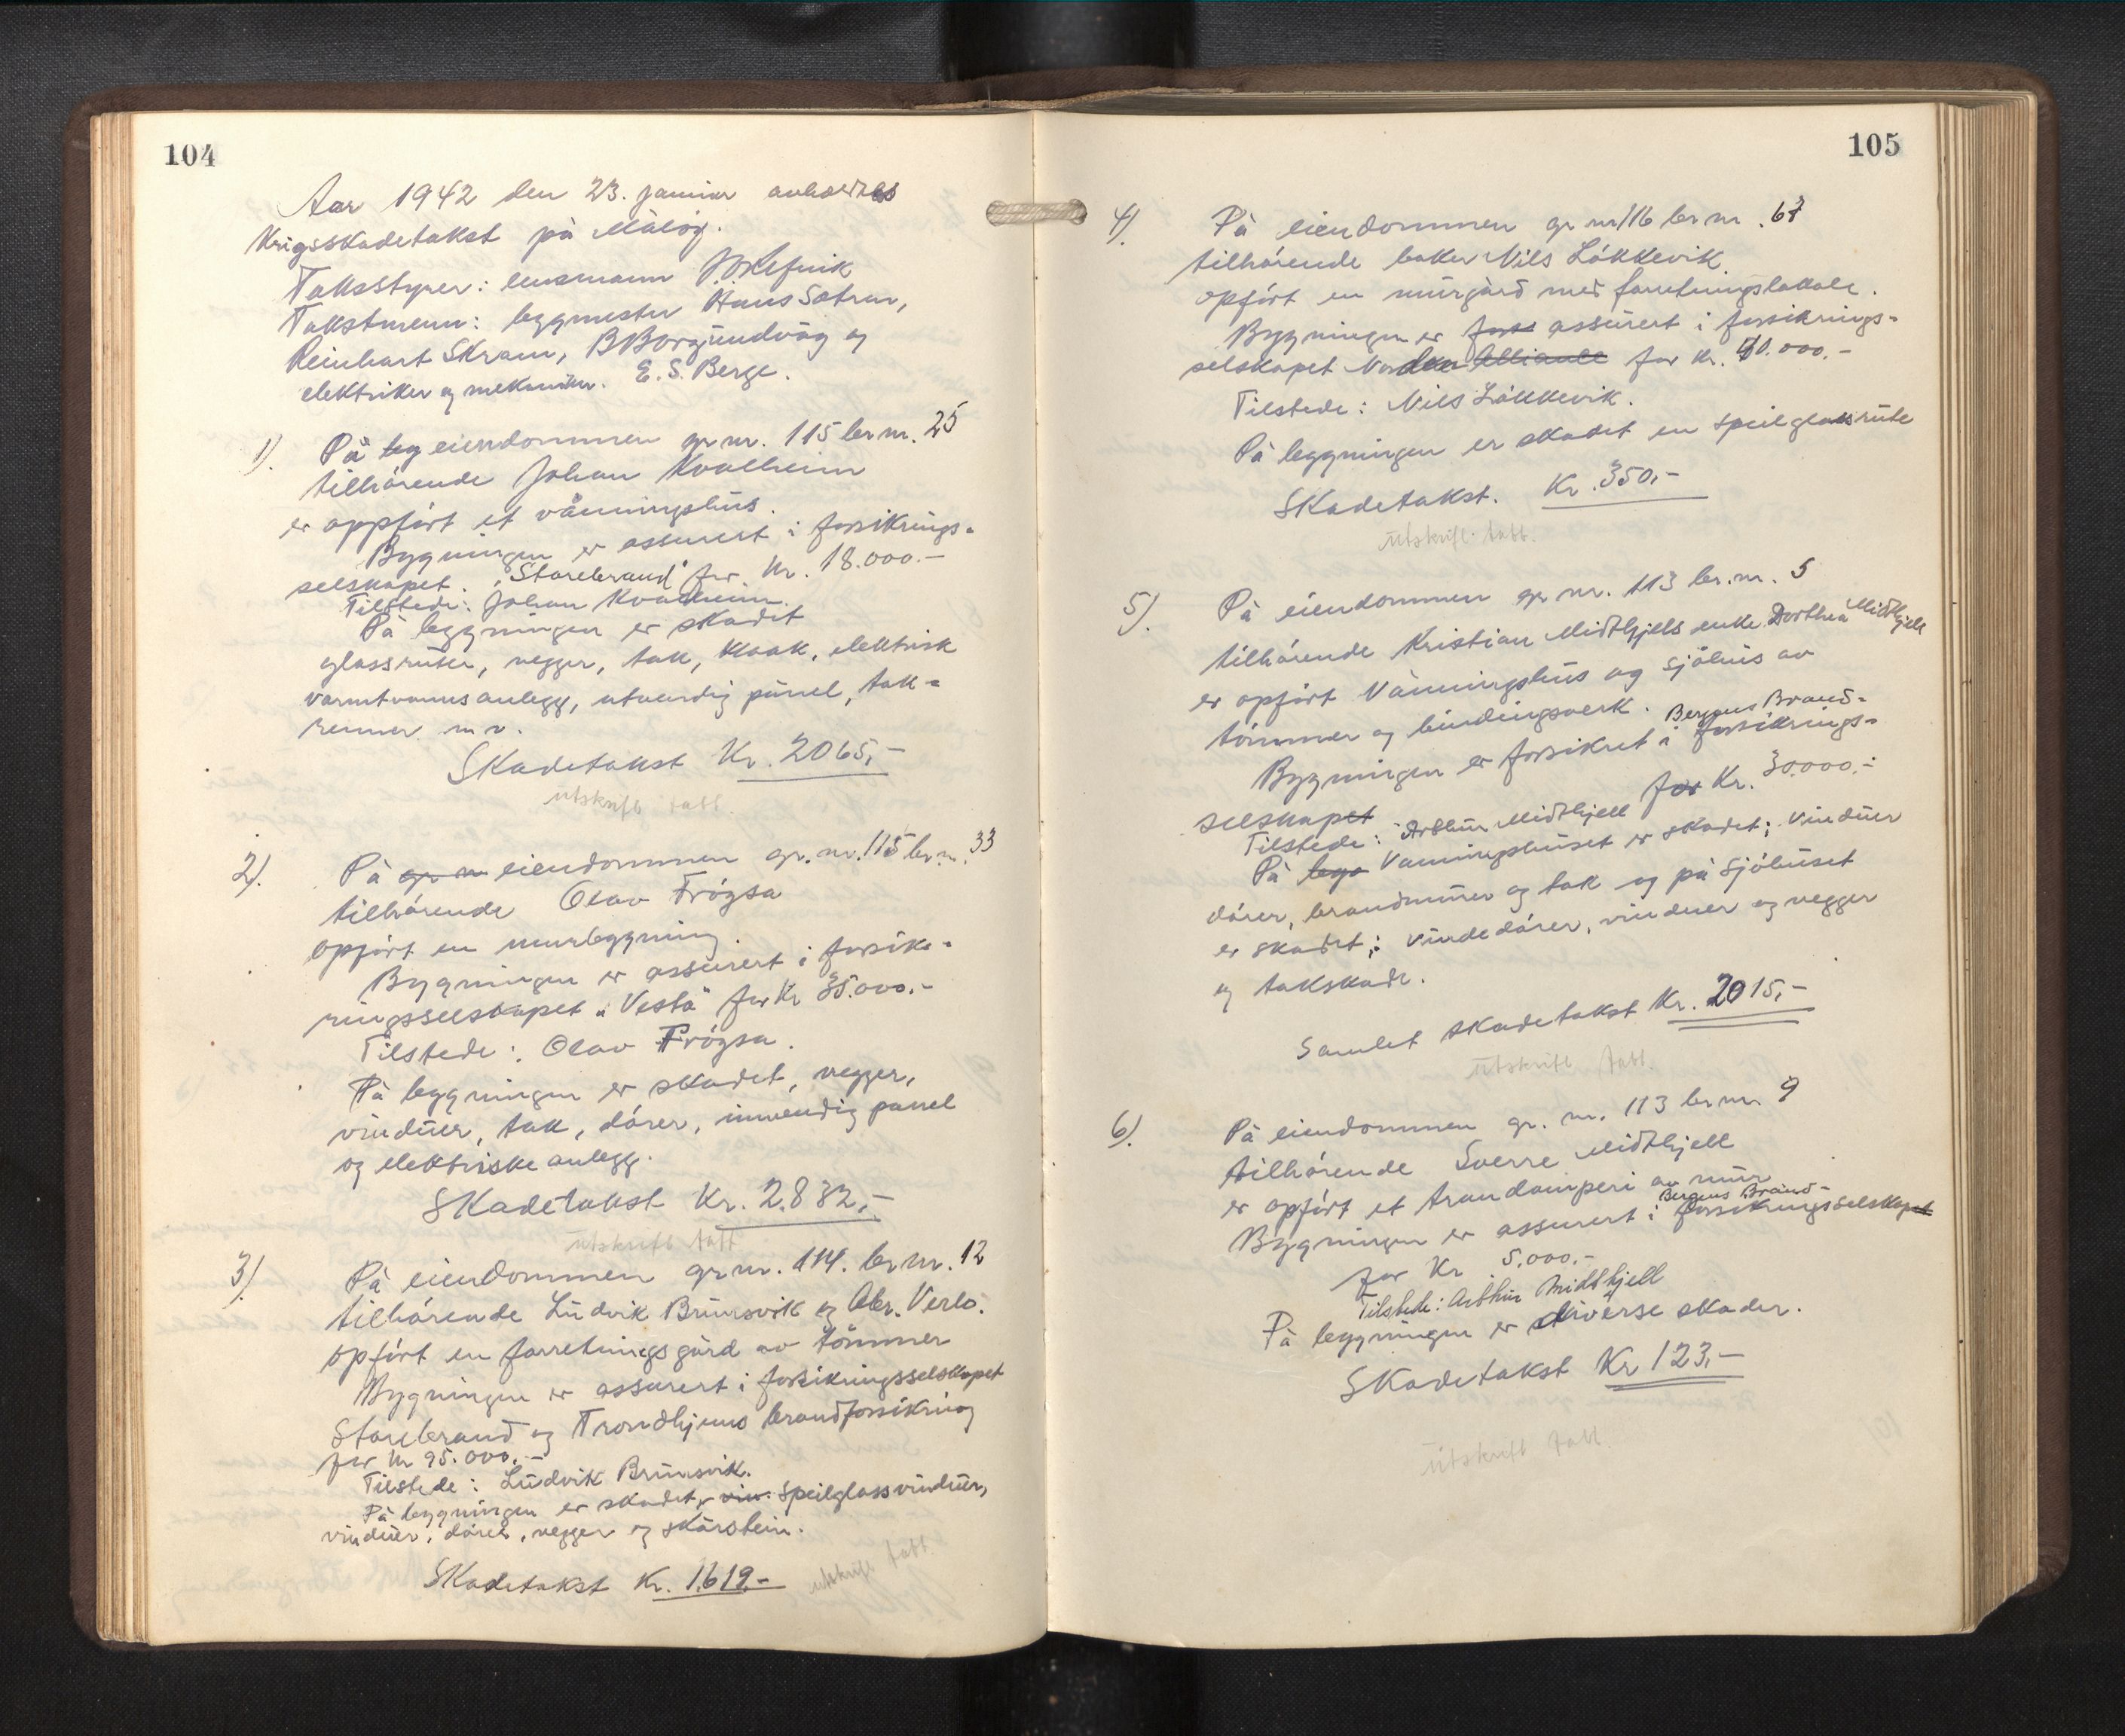 104
Aar 1942 den 23. januar avholdtes
Krigsskadetakst på Måløy.
Takstyrer: lensmann
Takstmenn: byggmester Hans Sætren,
Reinhart Skram, B Borgundvåg og
elektriker og mekaniker. E. S. Berge.
1). På byg eiendommen gr nr. 115 br nr. 25
tilhørende Johan Kvalheim
er oppført et våningshus.
Bygningen er assurert i forsikrings-
selskapet. "Storebrand" for Kr. 18.000.-
Tilstede: Johan Kvalheim.
På bygningen er skadet
glassruter, vegger, tak, kloak, elektrisk
varmtvannsanlegg, utvendig panel, tak-
renner m.v.
Skadetakst Kr. 2065,-
utskrift tatt.
2). På gr n eiendommen gr. nr. 115 br. nr. 33
tilhørende Olav Frøysa
opført en murbygning.
Bygningen er assurert i forsik-
ringsselskapet "Vesta" for Kr 35.000.-
Tilstede: Olav Frøysa.
På bygningen er skadet, vegger,
vinduer, tak, dører, innvendig panel
og elektriske anlegg.
Skadetakst Kr. 2.832,-
utskrift tatt
3). På eiendommen gr nr. 114. br nr. 12
tilhørende Ludvik Brunsvik og Abr. Verlo.
opført en forretningsgård av tømmer
Bygningen er assurert i forsikringsselskapet
Storebrand og Trondhjems brandforsikring
for Kr 95.000.-
Tilstede: Ludvik Brunsvik.
På bygningen er skadet, vin. speilglassvinduer,
vinduer, dører, vegger og skorstein.
Skadetakst Kr. 1619.-
utskrift tatt.
105
4). På eiendommen gr nr 116 br nr. 63
tilhørende baker Nils Løkkevik
opført en murgård med forretningslokale.
Bygningen er fors assurert i forsikrings-
selskapet Norden Alliance for Kr. 40.000.-
Tilstede: Nils Løkkevik.
På bygningen er skadet en speilglassrute
Skadetakst. Kr. 350,-
utskrift tatt.
5). På eiendommen gr nr. 113 br. nr. 5
tilhørende Kristian Midthjells enke Dorthea Midthjell
er opført Våningshus og sjøhus av
tømmer og bindingsverk.
Bergens Brand-
Bygningen er forsikret i forsikrings-
selskapet for Kr. 30.000.-
Tilstede: Arthur Midthjell
På bygn Vaningshuset er skadet; vinduer
dører, brandmurer og tak og på sjøhuset
er skadet; vindedører, vinduer og vegger
og takskade.
Samlet skadetakst Kr. 2015,-
utskrift tatt.
6). På eiendommen gr. nr. 113 br nr. 9
tilhørende Sverre Midthjell
er opført et trandamperi av mur
Bergens Brand-
Bygningen er assurert i forsikringsselskapet
for Kr 5.000.-
Tilstede: Arthur Midthjell
På bygningen er diverse skader.
Skadetakst Kr 123,-
utskrift tatt.